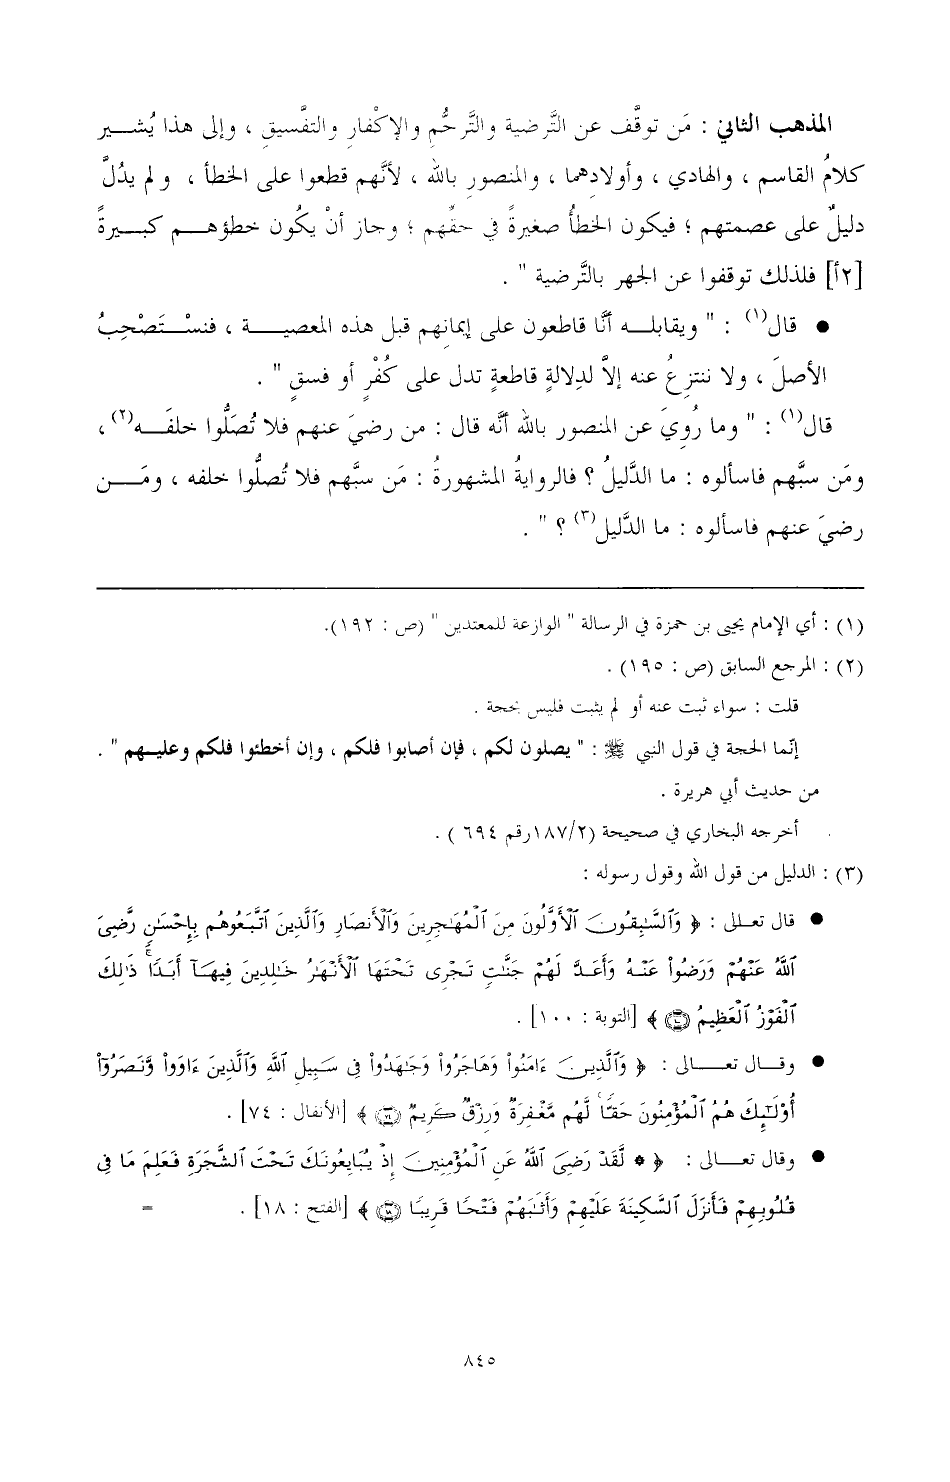 المذهب الثاني : مَن توقَّف عن التَّرضية والتَّرحُّمِ والإكْفارِ والتفَّسيقِ ، وإلى هذا يُشــير
كلامُ القاسم ، والهادي ، وأولادِهما ، والمنصورِ بالله ، لأنَّهم قطعوا على الخطأ ، و لم يدُلَّ
دليلٌ على عصمتهم ؛ فيكون الخطأُ صغيرةً في حقِّهم ؛ وجاز أنْ يكُون خطؤهــم كبــيرةً
[٢أ] فلذلك توقفوا عن الجهر بالتَّرضية " .
● قال(١) : " ويقابلــه أنَّا قاطعون على إيمانِهم قبل هذه المعصيــــة ، فنسْــتَصْحِبُ
الأصلَ ، ولا ننتزعُ عنه إلاَّ لدِلالةٍ قاطعةٍ تدل على كُفْرٍ أو فسقٍ " .
قال(١) : " وما رُوِيَ عن المنصور بالله أنَّه قال : من رضيَ عنهم فلا تُصَلُّوا خلفَــه(٢) ،
ومَن سبَّهم فاسألوه : ما الدَّليلُ ؟ فالروايةُ المشهورةُ : مَن سبَّهم فلا تُصلُّوا خلفه ، ومَــن
رضيَ عنهم فاسألوه : ما الدَّليل(٣) ؟ " .
(١) : أي الإمام يحيى بن حمزة في الرسالة " الوازعة للمعتدين " (ص : ١٩٢).
(٢) : المرجع السابق (ص : ١٩٥) .
قلت : سواء ثبت عنه أو لم يثبت فليس بحجة .
إنّما الحجة في قول النبي ﷺ : " يصلون لكم ، فإن أصابوا فلكم ، وإن أخطئوا فلكم وعليــهم " .
من حديث أبي هريرة .
أخرجه البخاري في صحيحة (١٨٧/٢رقم ٦٩٤ ) .
(٣) : الدليل من قول الله وقول رسوله :
● قال تعــالى : ﴿ وَٱلسَّٰبِقُونَ ٱلْأَوَّلُونَ مِنَ ٱلْمُهَٰجِرِينَ وَٱلْأَنصَارِ وَٱلَّذِينَ ٱتَّبَعُوهُم بِإِحْسَٰنٍ رَّضِىَ
ٱللَّهُ عَنْهُمْ وَرَضُوا۟ عَنْهُ وَأَعَدَّ لَهُمْ جَنَّٰتٍ تَجْرِى تَحْتَهَا ٱلْأَنْهَٰرُ خَٰلِدِينَ فِيهَآ أَبَدًا ۚ ذَٰلِكَ
ٱلْفَوْزُ ٱلْعَظِيمُ ۝ ﴾ [التوبة : ١٠٠] .
● وقــال تعــــالى : ﴿ وَٱلَّذِينَ ءَامَنُوا۟ وَهَاجَرُوا۟ وَجَٰهَدُوا۟ فِى سَبِيلِ ٱللَّهِ وَٱلَّذِينَ ءَاوَوا۟ وَّنَصَرُوٓا۟
أُو۟لَٰٓئِكَ هُمُ ٱلْمُؤْمِنُونَ حَقًّا ۚ لَّهُم مَّغْفِرَةٌ وَرِزْقٌ كَرِيمٌ ۝ ﴾ [الأنفال : ٧٤] .
● وقال تعــــالى : ﴿ * لَّقَدْ رَضِىَ ٱللَّهُ عَنِ ٱلْمُؤْمِنِينَ إِذْ يُبَايِعُونَكَ تَحْتَ ٱلشَّجَرَةِ فَعَلِمَ مَا فِى
قُلُوبِهِمْ فَأَنزَلَ ٱلسَّكِينَةَ عَلَيْهِمْ وَأَثَٰبَهُمْ فَتْحًا قَرِيبًا ۝ ﴾ [الفتح : ١٨] . =
٨٤٥